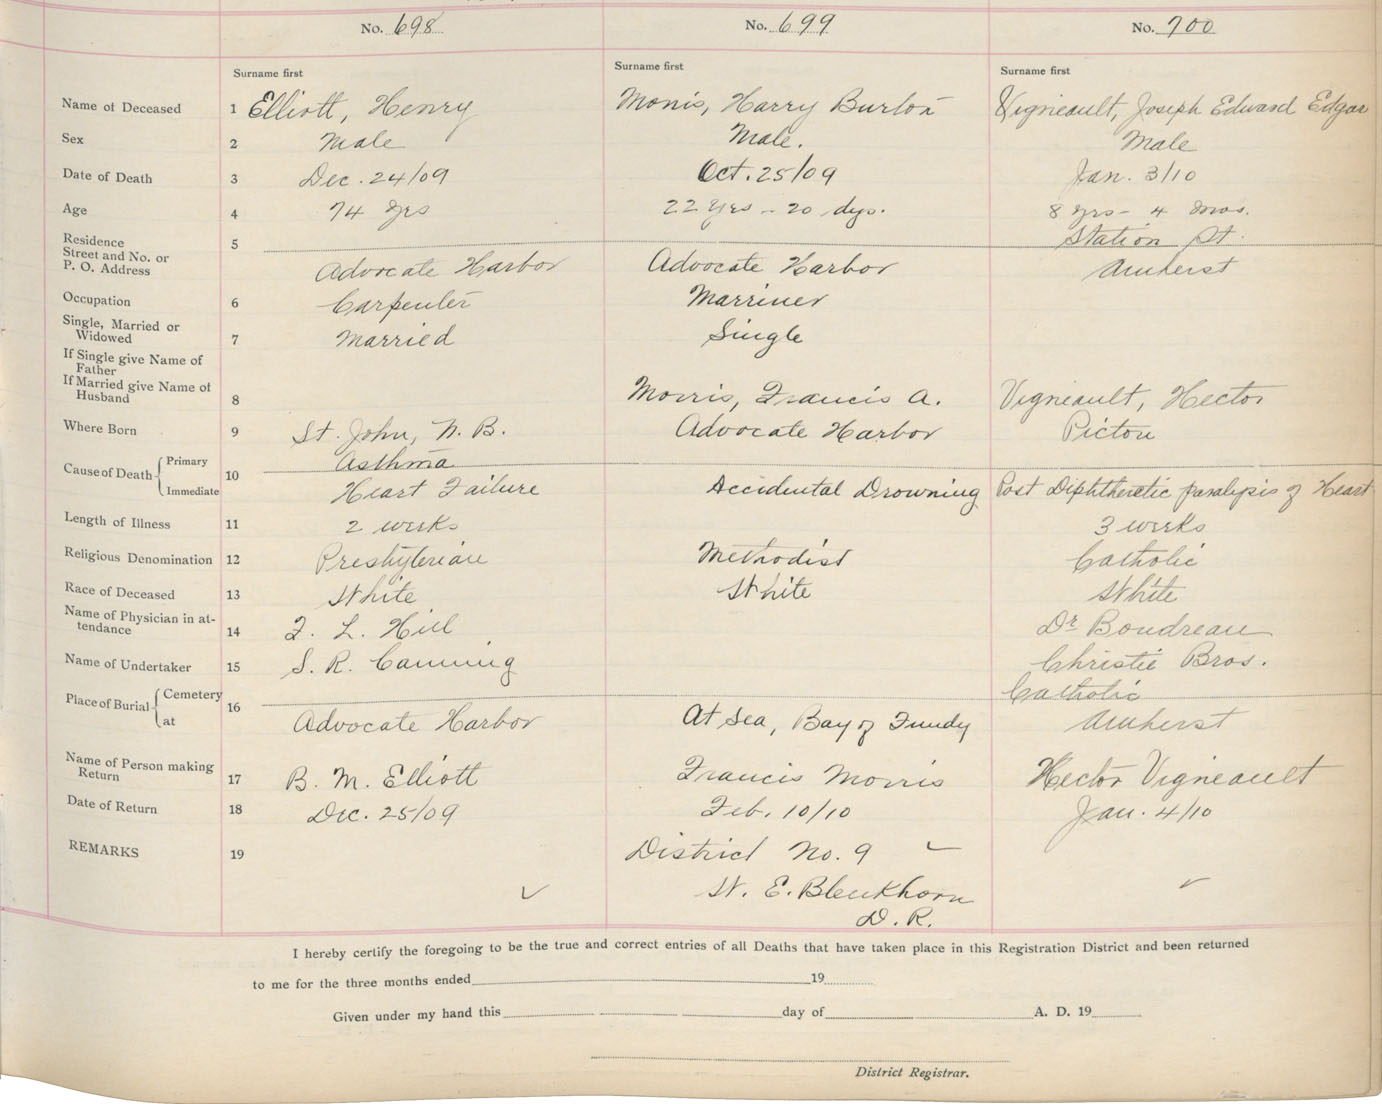 No. 698 No. 699 No. 700
Surname first Surname first Surname first
Name of Deceased 1 Elliott, Henry Morris, Harry Burton Vigneault, Joseph Edward Edgar
Sex 2 Male Male. Male
Date of Death 3 Dec. 24/09 Oct. 25/09 Jan. 3/10
Age 4 74 yrs 22 Yrs - 20 dys. 8 yrs - 4 mos.
Residence 5 Station St.
Street and No. or
P. O. Address Advocate Harbor Advocate Harbor Amherst
Occupation 6 Carpenter Marriner
Single, Married or
Widowed 7 Married Single
If Single give Name of
Father
If Married give Name of
Husband 8 Morris, Francis A. Vigneault, Hector
Where Born 9 St. John, N. B. Advocate Harbor Pictou
Cause of Death Primary 10 Asthma
Immediate Heart Failure Accidental Drowning Post Diphtheretic paralysis of Heart
Length of Illness 11 2 weeks 3 weeks
Religious Denomination 12 Presbyterian Methodist Catholic
Race of Deceased 13 White White White
Name of Physician in at-
tendance 14 F. L. Hill Dr Boudreau
Name of Undertaker 15 S. R. Canning Christie Bros.
Place of Burial Cemetery 16 Catholic
at Advocate Harbor At Sea, Bay of Fundy Amherst
Name of Person making
Return 17 B. M. Elliott Francis Morris Hector Vigneault
Date of Return 18 Dec. 25/09 Feb. 10/10 Jan. 4/10
REMARKS 19 District No. 9
W. E. Blenkhorn
D. R.
I hereby certify the foregoing to be the true and correct entries of all Deaths that have taken place in this Registration District and been returned
to me for the three months ended 19
Given under my hand this day of A. D. 19
District Registrar.